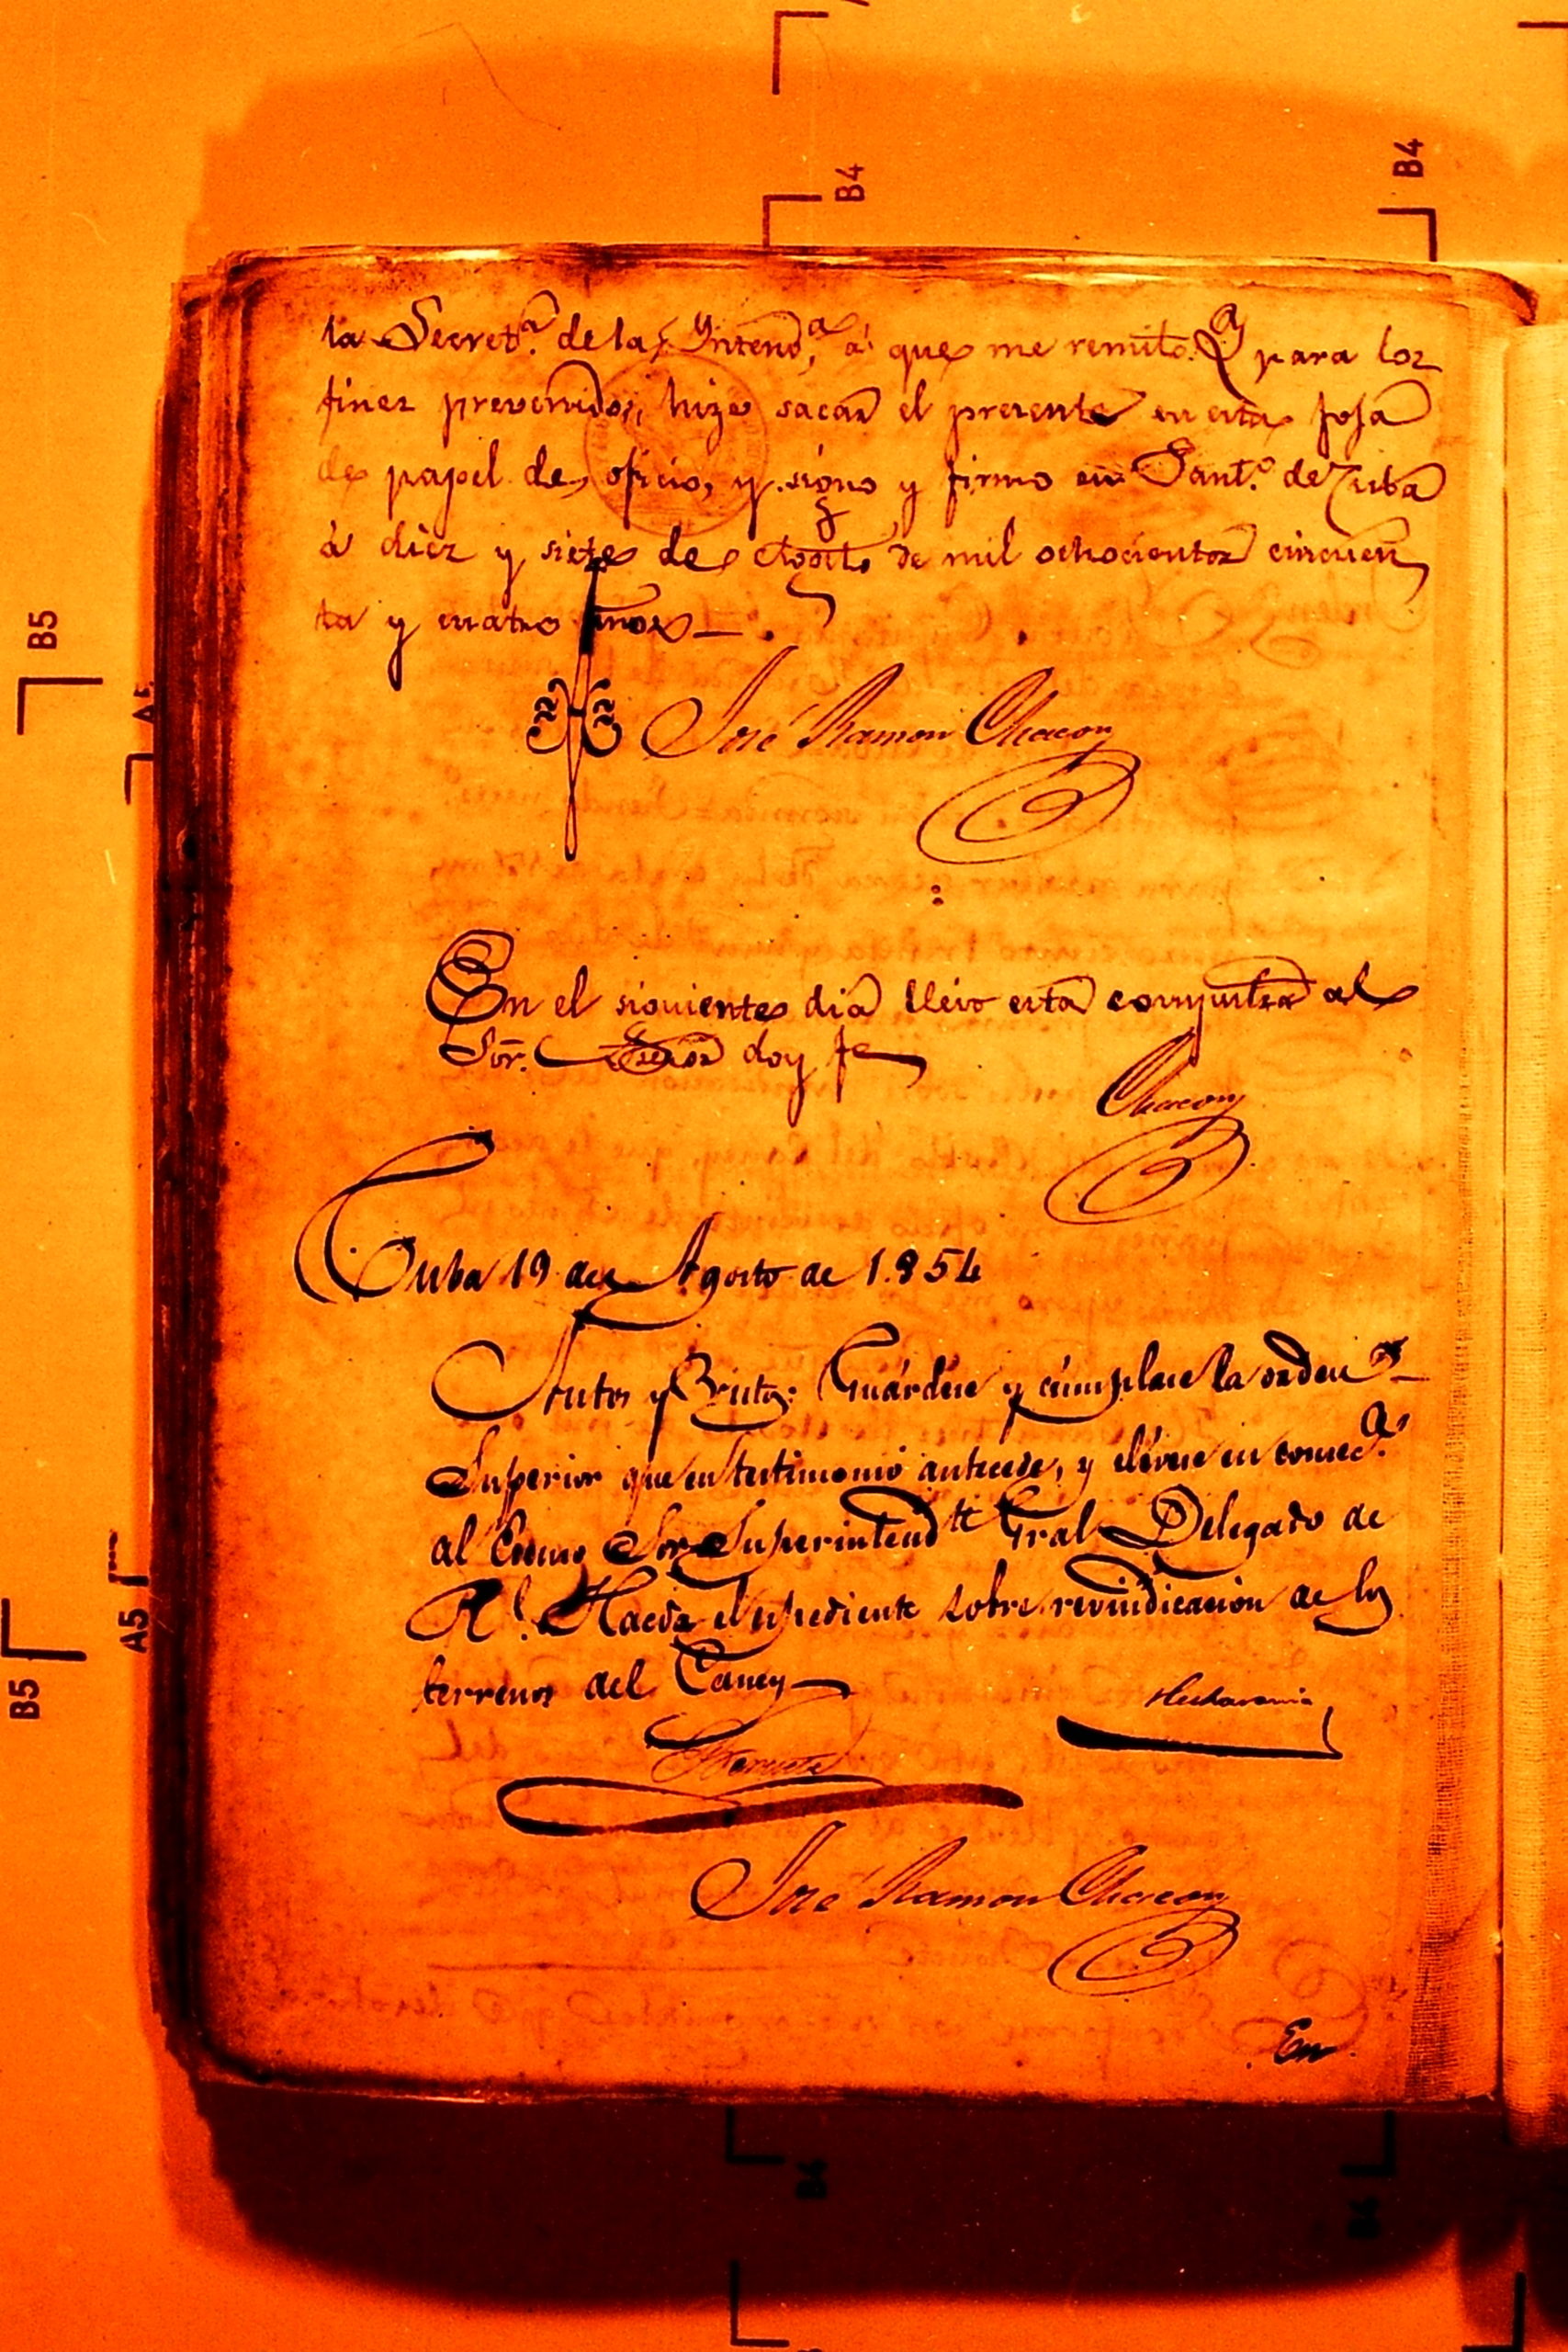 la Secret.ª de la Yntend.ª á que me remito. Y para los
fines prevenidos, hize sacar el presente en esta foja
de papel de oficio, y signo y firmo en Sant.º de Cuba
á diez y siete de Agosto de mil ochocientos cincuen
ta y cuatro años—
José Ramon Chacon
En el siguiente dia llevo esta compulsa al
Sor. doy fe
Chacon
Cuba 19 de Agosto de 1.854
Autos y Vistos: Guárdese y cúmplase la orden
Superior que en testimonio antecede, y elévese en consec.ª
al Exmo Sor Superintend.te Gral Delegado de
R.l Hacda el espediente sobre reivindicacion de los
terrenos del Caney—
José Ramon Chacon
En
B4
B4
B5
A5
A5
B5
B4
B4